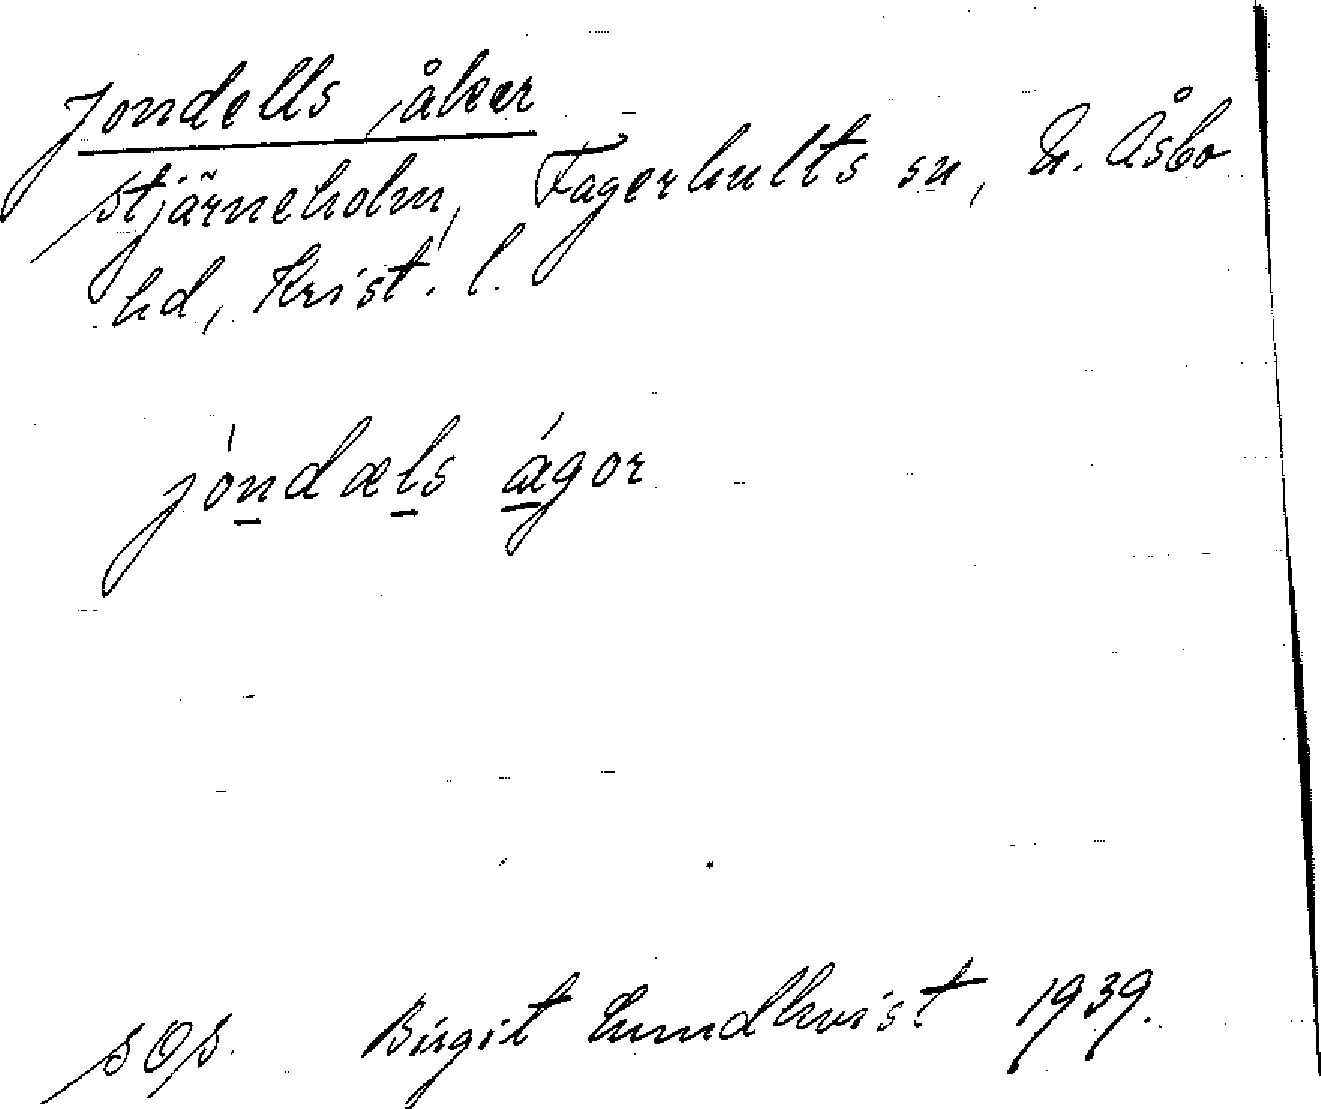 Jondells åker
Stjärneholm, Fagerhults sn, N. Åsbo
hd, Krist. l.
jóndæls ágor
sOs. Birgit Lundkvist 1939.